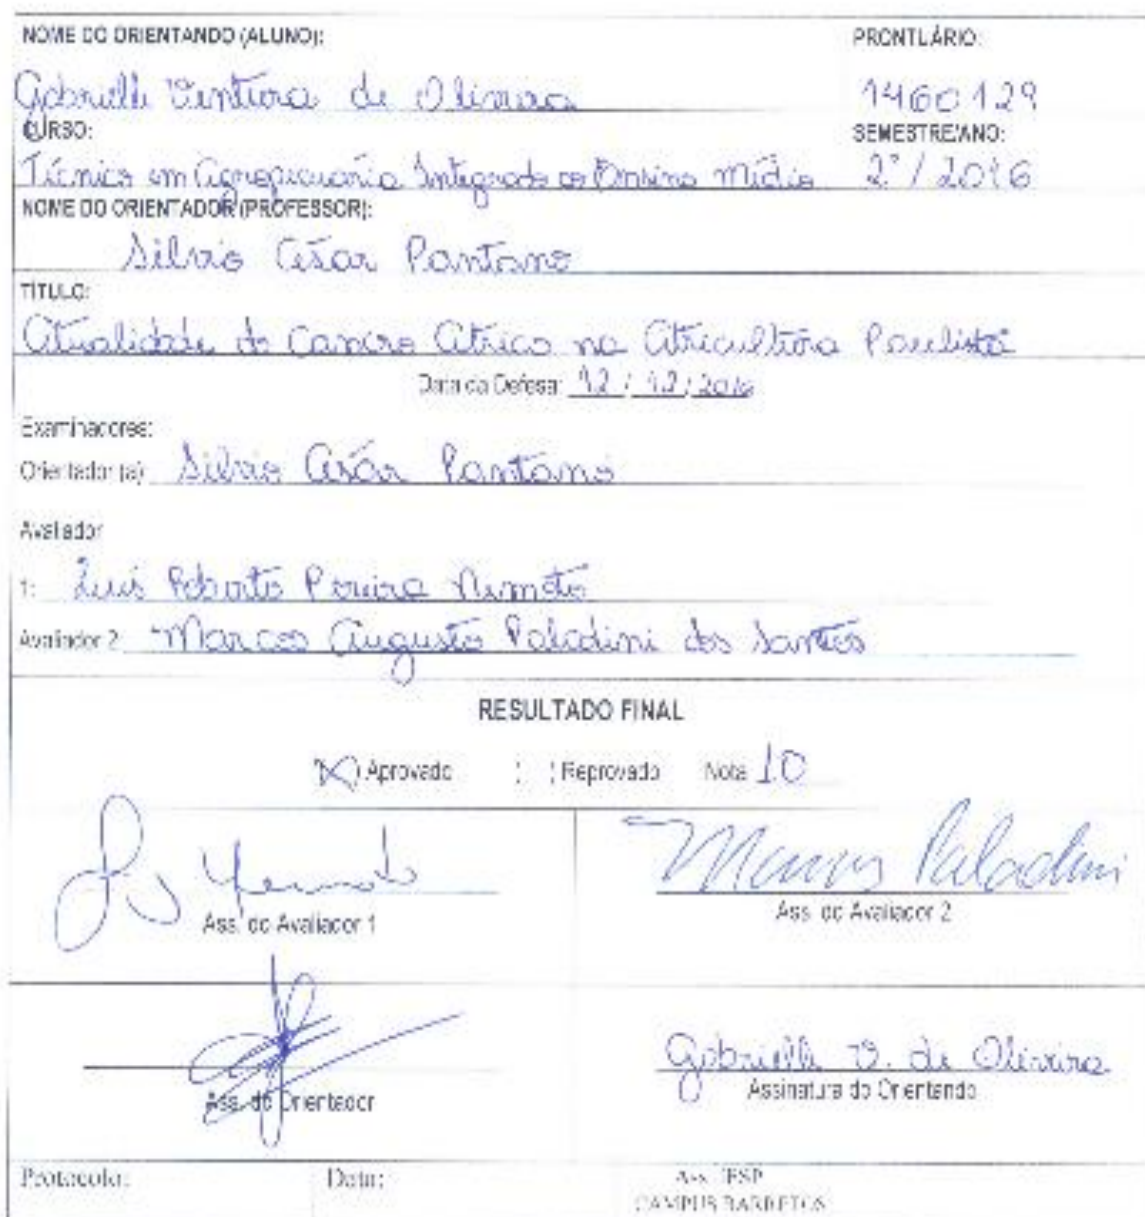 NOME DO ORIENTANDO (ALUNO): PRONTUÁRIO:
Gabrielli Ventura de Oliveira 1460129
CURSO: SEMESTRE/ANO:
Técnico em Agropecuária Integrado ao Ensino Médio 2º / 2016
NOME DO ORIENTADOR (PROFESSOR):
Silvio César Pantano
TÍTULO:
Atualidade do Cancro Cítrico na Citricultura Paulista
Data da Defesa: 12 / 12 / 2016
Examinadores:
Orientador (a): Silvio César Pantano
Avaliador
1: Luís Roberto Pereira Nemoto
Avaliador 2: Marcos Augusto Paladini dos Santos
RESULTADO FINAL
(X) Aprovado ( ) Reprovado Nota 10
Marcos Paladini
Ass. do Avaliador 1 Ass. do Avaliador 2
Gabrielli V. de Oliveira
Ass. do Orientador Assinatura do Orientando
Protocolo: Data: Ass. IFSP
CAMPUS BARRETOS